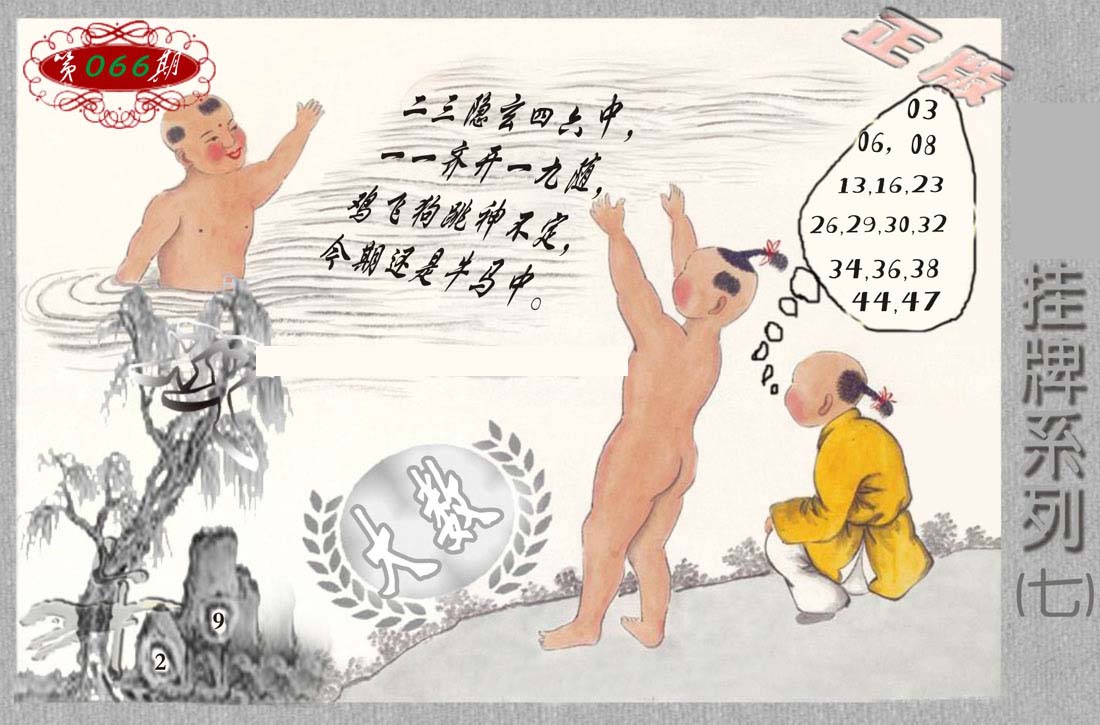 第066期
正版
二三隐玄四六中，
一一齐开一九随，
鸡飞狗跳神不定，
今期还是牛马中。
03
06，08
13,16,23
26,29,30,32
34,36,38
44,47
大数
9
2
挂牌系列(七)